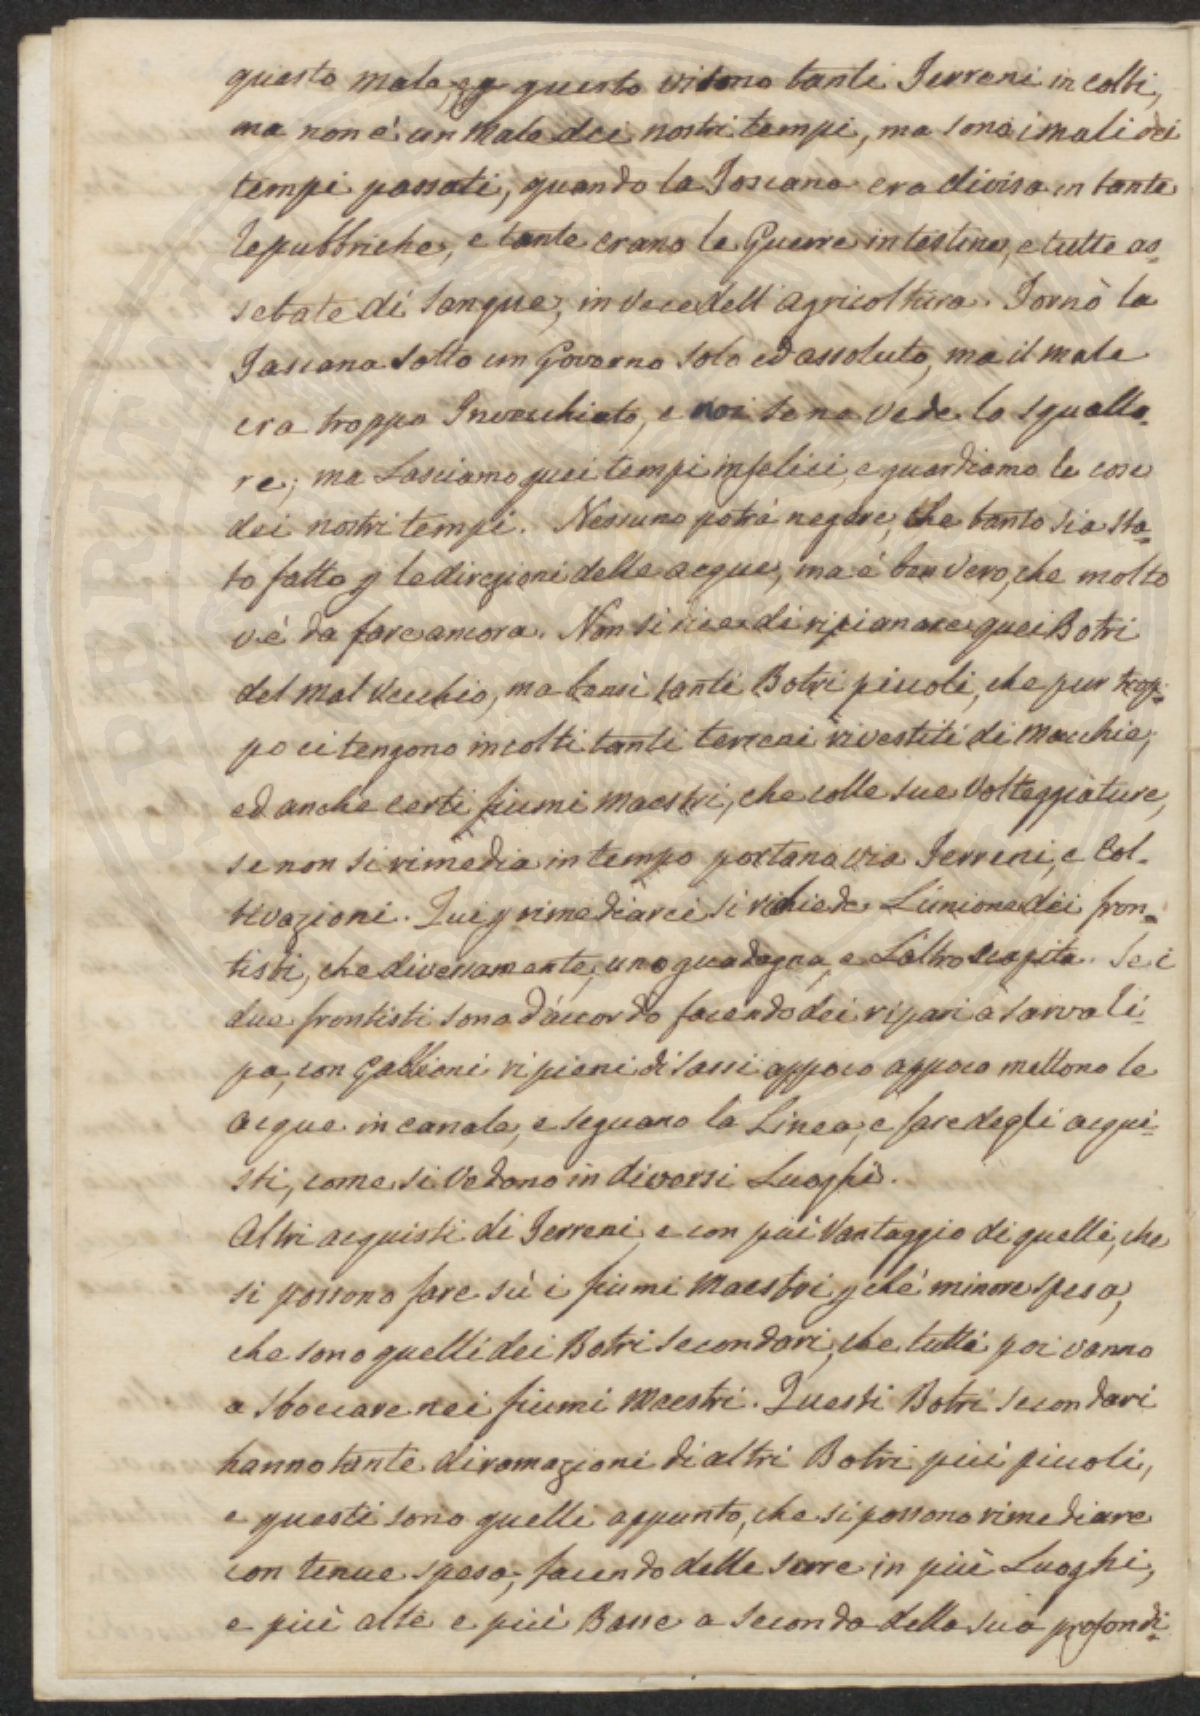 questo male, e p questo vi sono tanti Terreni incolti,
ma non è un male dei nostri tempi, ma sono i mali dei
tempi passati, quando la Toscana era divisa in tante
Repubbriche, e tante erano le Guerre intestine, e tutte as-
setate di sangue, in vece dell'agricoltura. Tornò la
Toscana sotto un Governo solo ed assoluto, ma il male
era troppo Invecchiato, e noi se ne vede lo squallo-
re; ma Lasciamo quei tempi infelici, e guardiamo le cose
dei nostri tempi. Nessuno potrà negare, che tanto sia sta-
to fatto p le direzioni delle acque, ma è ben vero, che molto
v'è da fare ancora. Non si dice di ripianare quei Botri
del mal Vecchio, ma bensì tanti Botri piccoli, che pur trop-
po ci tengono incolti tanti terreni rivestiti di Macchie,
ed anche certi fiumi Maestri, che colle sue Volteggiature,
se non si rimedia in tempo portano via Terreni, e Col-
tivazioni. Qui p rimediarci si richiede L'unione dei fron-
tisti, che diversamente, uno guadagna, e L'altro scapita. Se i
due frontisti sono d'accordo facendo dei ripari a salva Ri-
pa, con Gabbioni ripieni di sassi appoco appoco mettono le
acque in canale, e seguano la Linea, e fare degli acqui-
sti, come si Vedono in diversi Luoghi.
Altri acquisti di Terreni, e con più Vantaggio di quelli, che
si possono fare sù i fiumi Maestri p chè minore spesa,
che sono quelli dei Botri secondari, che tutti poi vanno
a sboccare nei fiumi Maestri. Questi Botri secondari
hanno tante diramazioni di altri Botri più piccoli,
e questi sono quelli appunto, che si possono rimediare
con tenue spesa, facendo delle serre in più Luoghi,
e più alte e più Basse a seconda della sua profondi-